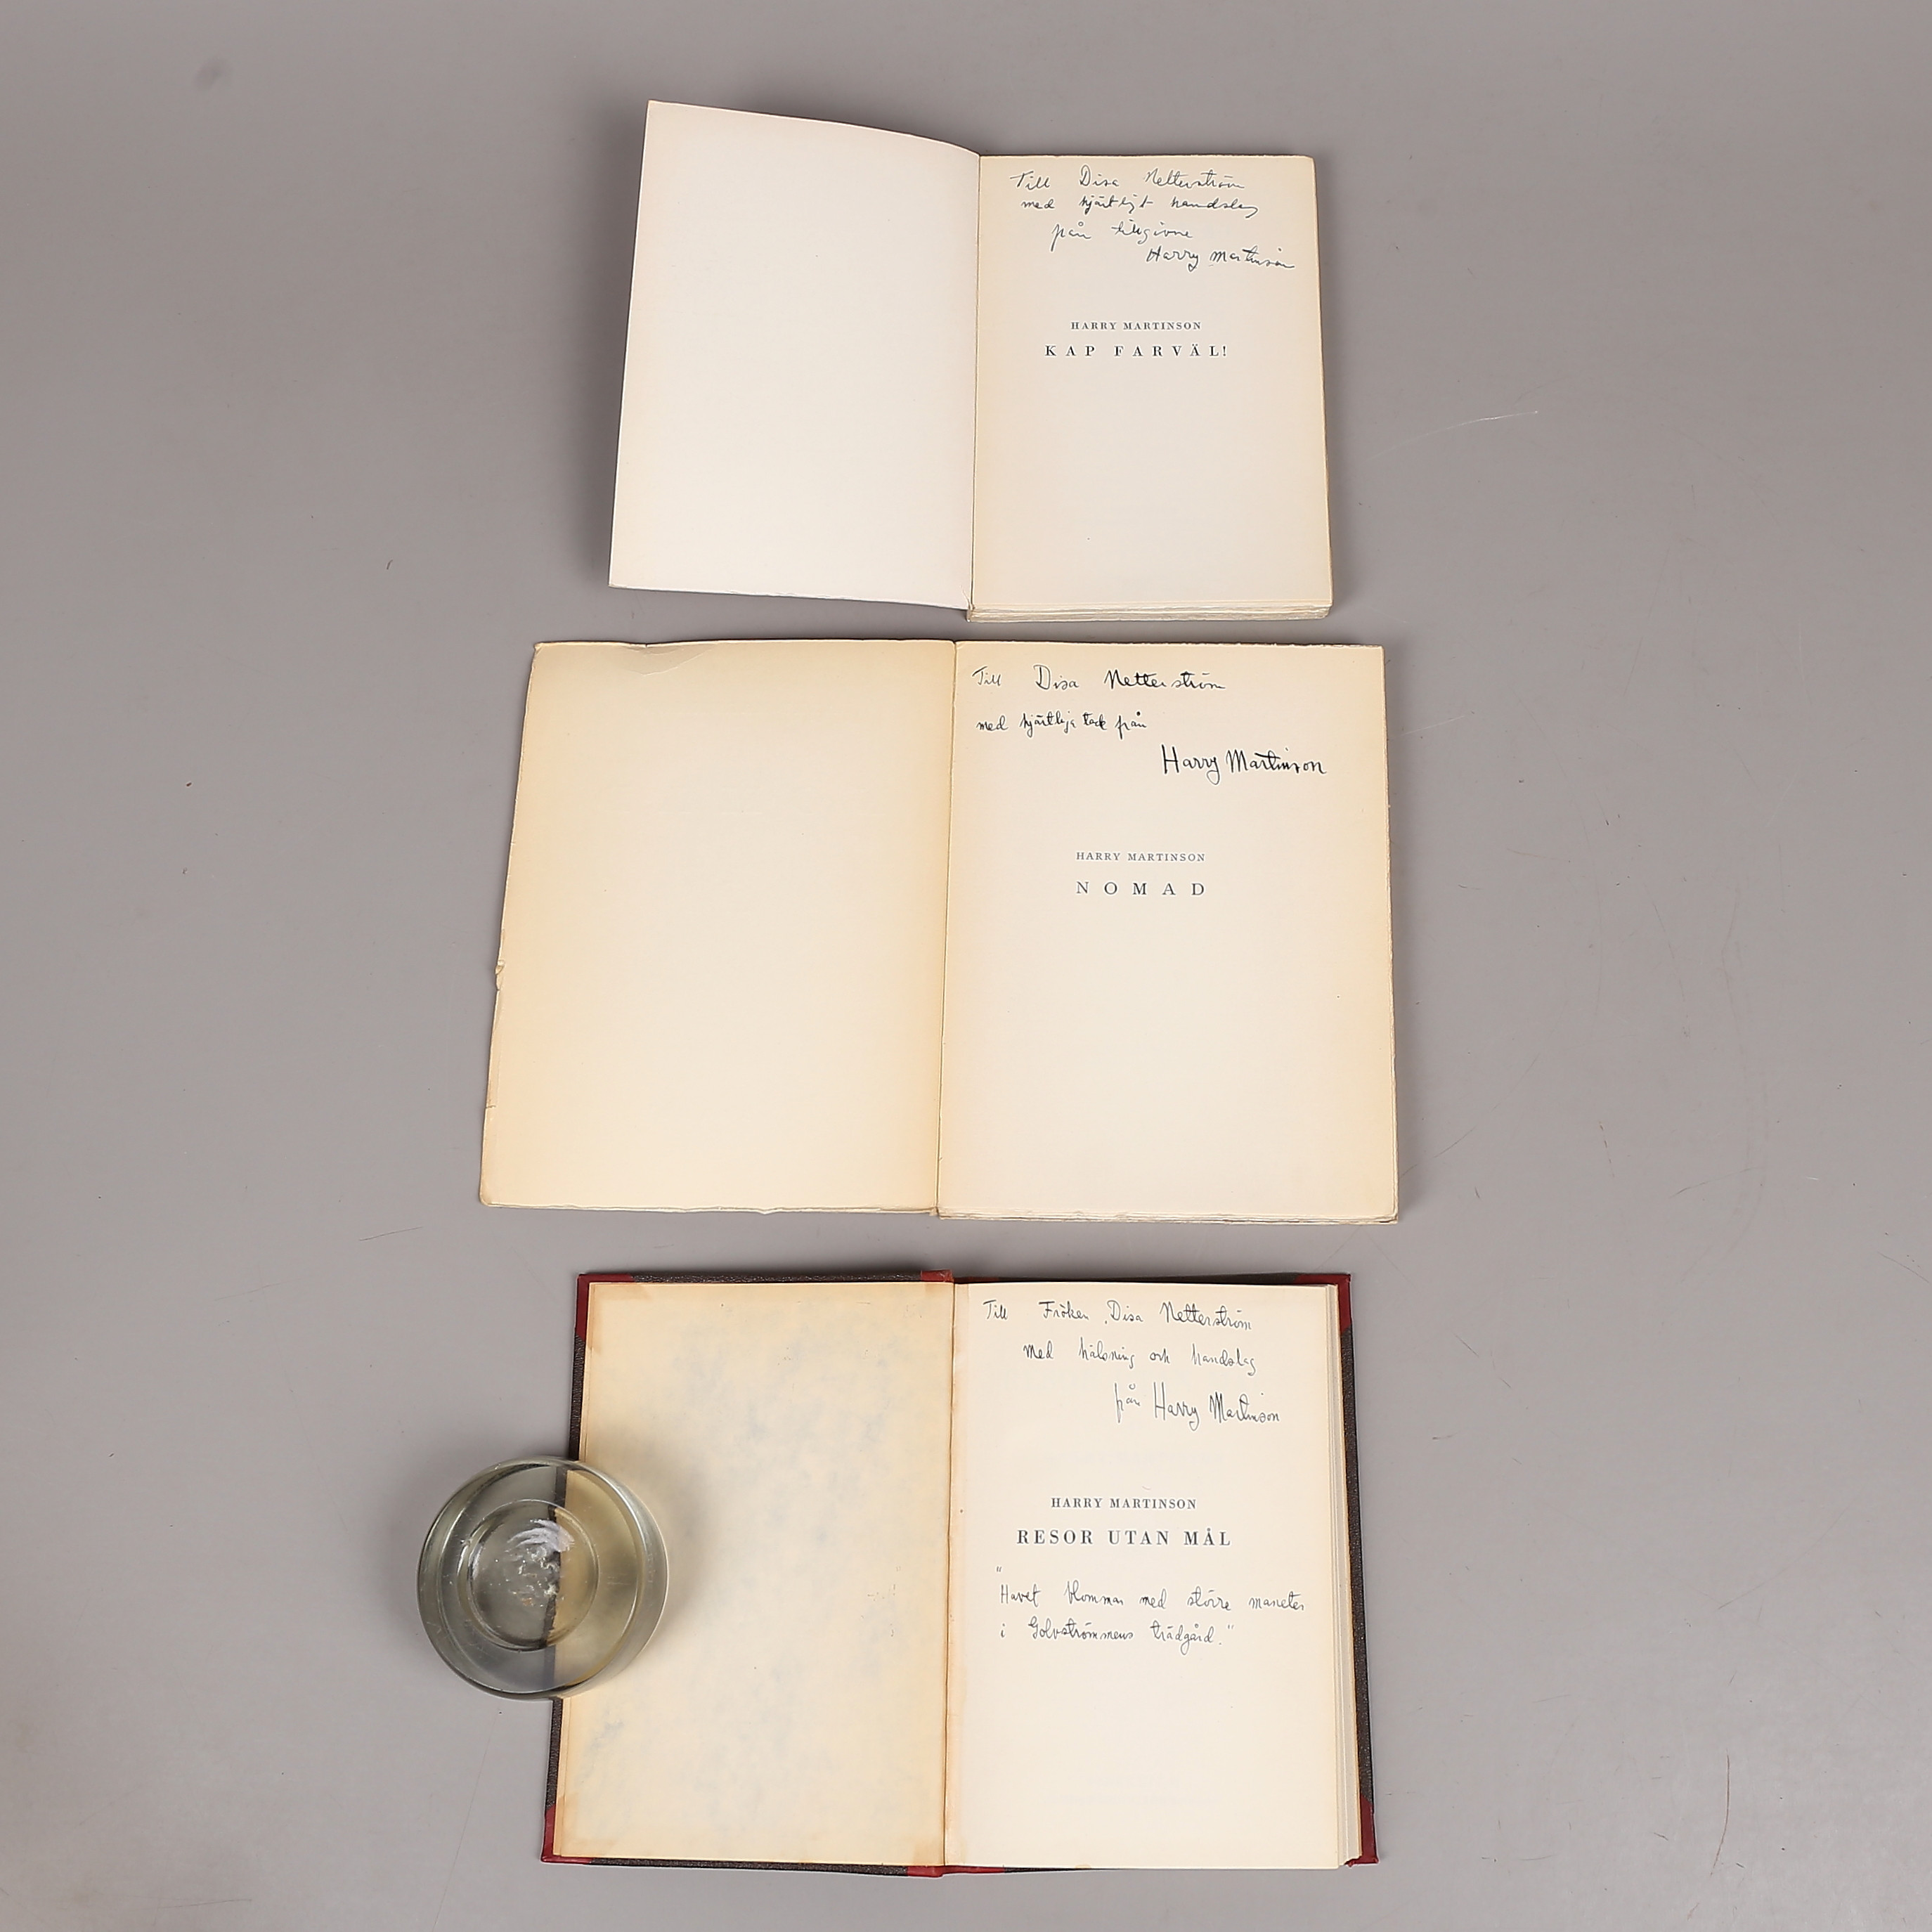 Till Disa Netterström
med hjärtligt handslag
från tillgivne
Harry Martinson
HARRY MARTINSON
KAP FARVÄL!
Till Disa Netterström
med hjärtliga tack från
Harry Martinson
HARRY MARTINSON
NOMAD
Till Fröken Disa Netterström
Med hälsning och handslag
från Harry Martinson
HARRY MARTINSON
RESOR UTAN MÅL
"Havet blommar med större maneter
i Golvströmmens trädgård."